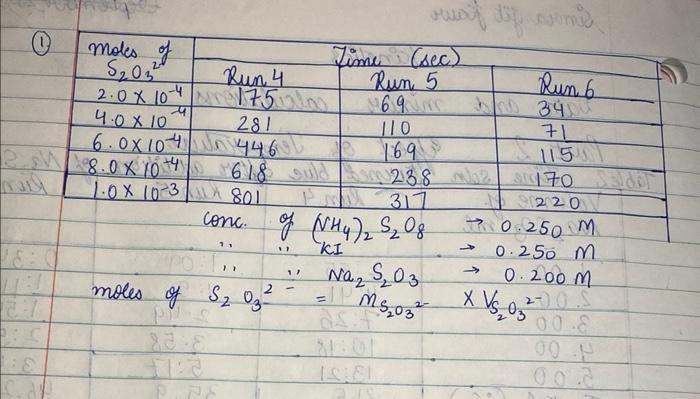 ① moles of S₂O₃²⁻ Time (sec)
Run 4 Run 5 Run 6
2.0 x 10⁻⁴ 175 69 34
4.0 x 10⁻⁴ 281 110 71
6.0 x 10⁻⁴ 446 169 115
8.0 x 10⁻⁴ 618 238 170
1.0 x 10⁻³ 801 317 220
conc. of (NH₄)₂ S₂O₈ → 0.250 M
,, ,, KI → 0.250 M
,, ,, Na₂S₂O₃ → 0.200 M
moles of S₂O₃²⁻ = M S₂O₃²⁻ x V S₂O₃²⁻